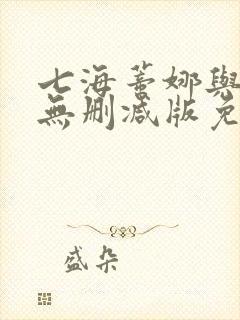 七海蒂娜與
無删减版免
盛朵